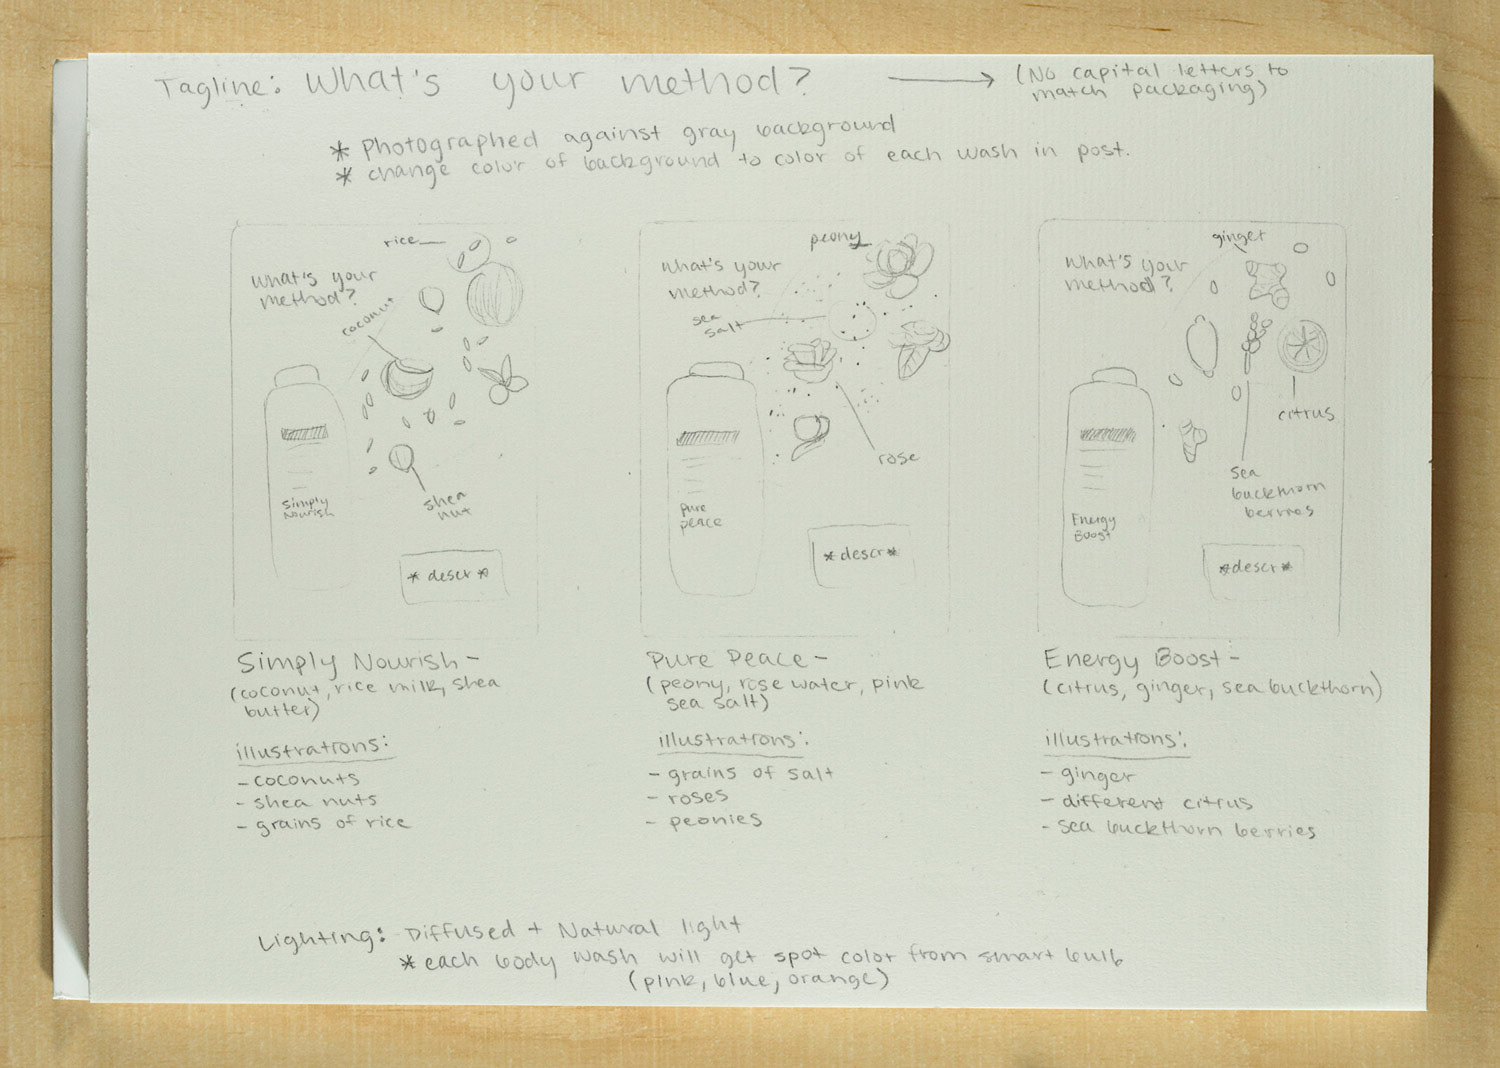 Tagline: What's your method? → (No capital letters to
match packaging)
* Photographed against gray background
* change color of background to color of each wash in post.
rice
What's your
method?
coconut
shea
nut
Simply
Nourish
* descr *
peony
What's your
method?
sea
salt
rose
Pure
peace
* descr *
ginger
What's your
method?
citrus
sea
buckthorn
berries
Energy
Boost
* descr *
Simply Nourish -
(coconut, rice milk, shea
butter)
illustrations:
- coconuts
- shea nuts
- grains of rice
Pure Peace -
(peony, rose water, pink
sea salt)
illustrations:
- grains of salt
- roses
- peonies
Energy Boost -
(citrus, ginger, sea buckthorn)
illustrations:
- ginger
- different citrus
- sea buckthorn berries
Lighting: Diffused + Natural light
* each body wash will get spot color from smart bulb
(pink, blue, orange)